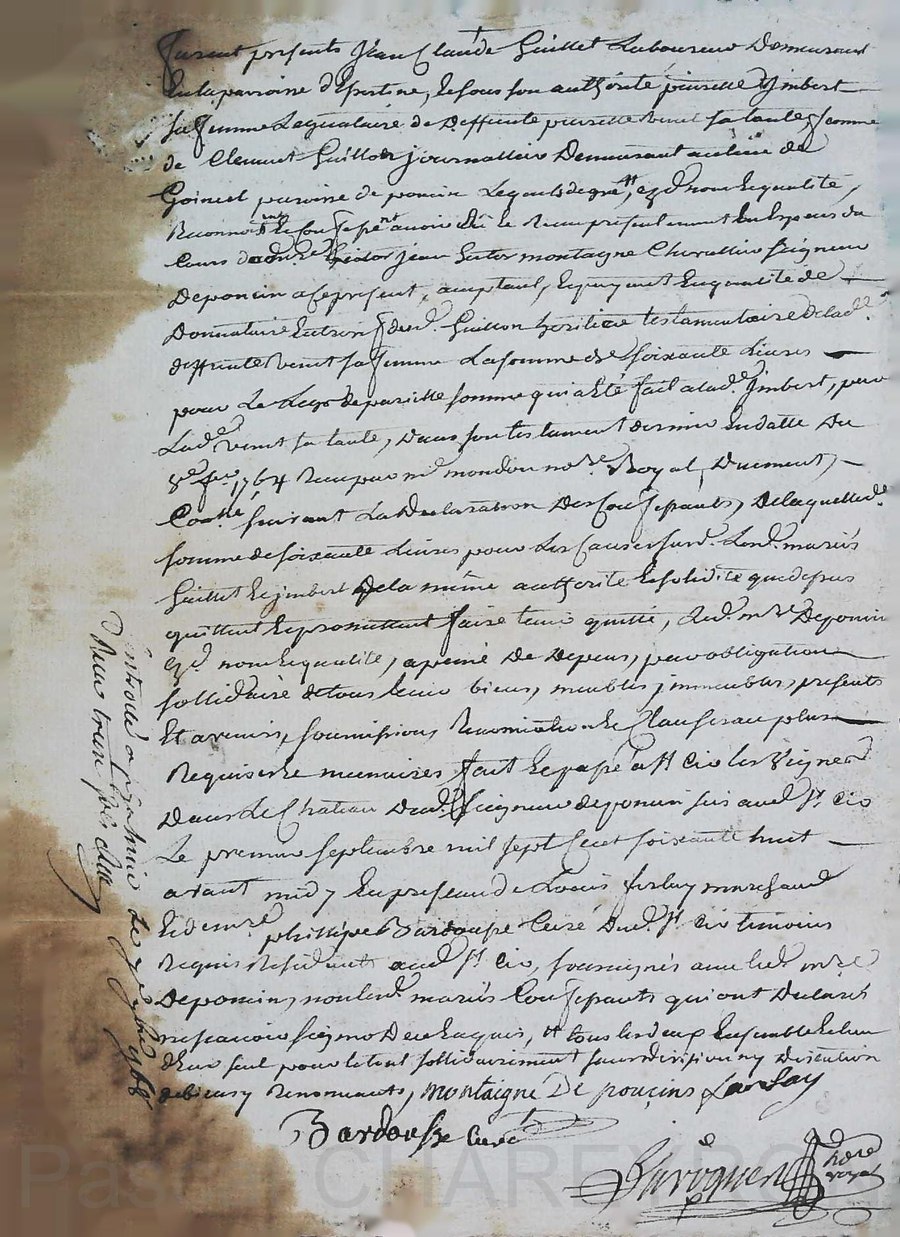 furent presents Jean Claude Guillet Laboureur Demeurant
En la parroisse d'Epertine, Et sous son authorité pierrette Imbert
sa femme Legataire de Deffunte pierrette vinet sa tante, femme
de Clement Guillon journallier Demeurant au lieu de
paroisse de poncin Lesquels de gré, esd. nom Et qualité,
Reconnoissent Et Confessent avoir Eû Et Receu présentement En Especes du
Cours de jean hector montagne Chevallier Seigneur
De poncin a ce present, acceptant, Et payant En qualité de
Donnataire Entre dud. Guillon heritier testamentaire De lad.
deffunte vinet sa femme La somme de soixante Livres
pour Le Legs de pareille somme qui a Eté fait a lad. Imbert, par
Lad. vinet sa tante, Dans son testament dernier En datte Du
1764 Receu par me mondon nore Royal, Duement
Collé, suivant La Declaration Des Confessants, De laquelle de
somme de soixante Livres pour Les Causes susd. Lesd. mariés
Guillet Et Imbert De la même authorité Et solidité que depuis
quittent Et promettent faire tenir quitte, Led. mre De poncin
esd. nom Et qualité, a peine De Depens, par obligation
sollidaire de tous leurs biens, meubles immeubles, presents
Et avenirs, soumissions, Renonciations Et Clauses au plus
Requises Et necessaires fait Et passé a St Cir les Vignes
Dans Le Chateau Dud. Seigneur de poncin sis aud. St. Cir
Le premier septembre mil sept Cent soixante huit
avant midy En presence de Louis marchand
Et de mre philippe Bardousse Curé Dud. St. Cir temoins
Requis Residents aud. St. Cir, soussignés avec led. mre
De poncin, non lesd. mariés Confessants qui ont Declarés
ne scavoir signer De ce Enquis, Et tous les deux Ensemble Et l'un
d'Eux seul pour le tout sollidairement sans division ny Discution
de biens y Renonceants, montaigne De poncins
Bardousse Curé
nore royal
Controllé a Le 7bre 1768
Receu treize sols
Pascal CHAREYRON